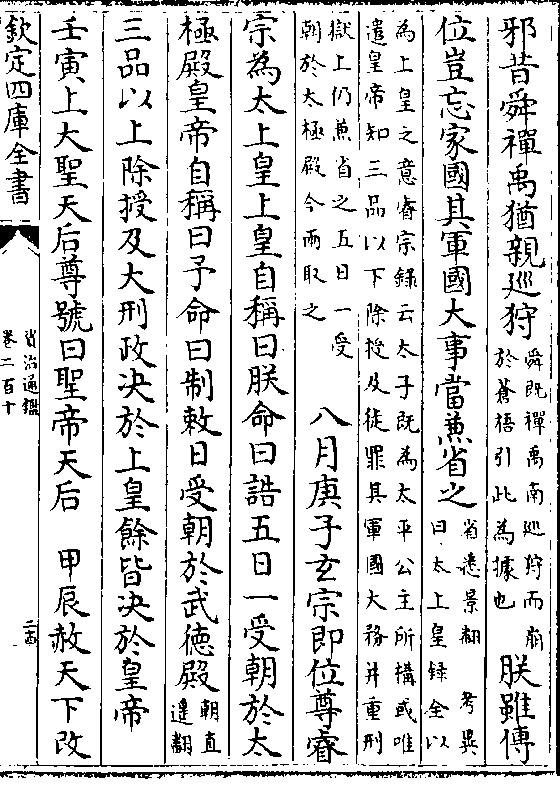 邪昔舜禪禹猶親巡狩
舜既禪禹南廵狩而崩
於蒼梧引此為據也
朕雖傳
位豈忘家國其軍國大事當兼省之
省悉景翻 考異
曰太上皇録全以
為上皇之意睿宗録云太子既為太平公主所構或唯
遣皇帝知三品以下除授及徒罪其軍國大務并重刑
獄上仍兼省之五日一受
朝於太極殿今兩取之
八月庚子玄宗即位尊睿
宗為太上皇上皇自稱曰朕命曰誥五日一受朝於太
極殿皇帝自稱曰予命曰制敕日受朝於武徳殿
朝直
遥翻
三品以上除授及大刑政决於上皇餘皆决於皇帝
壬寅上大聖天后尊號曰聖帝天后 甲辰赦天下改
欽定四庫全書
資治通鑑
卷二百十